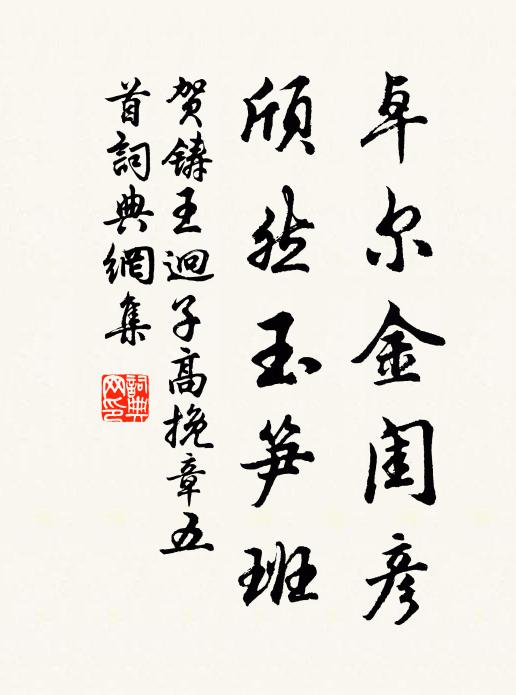 卓尔金闺彦
颀然玉笋班
贺铸王迥子高挽章五
首詞典網集
詞典網印